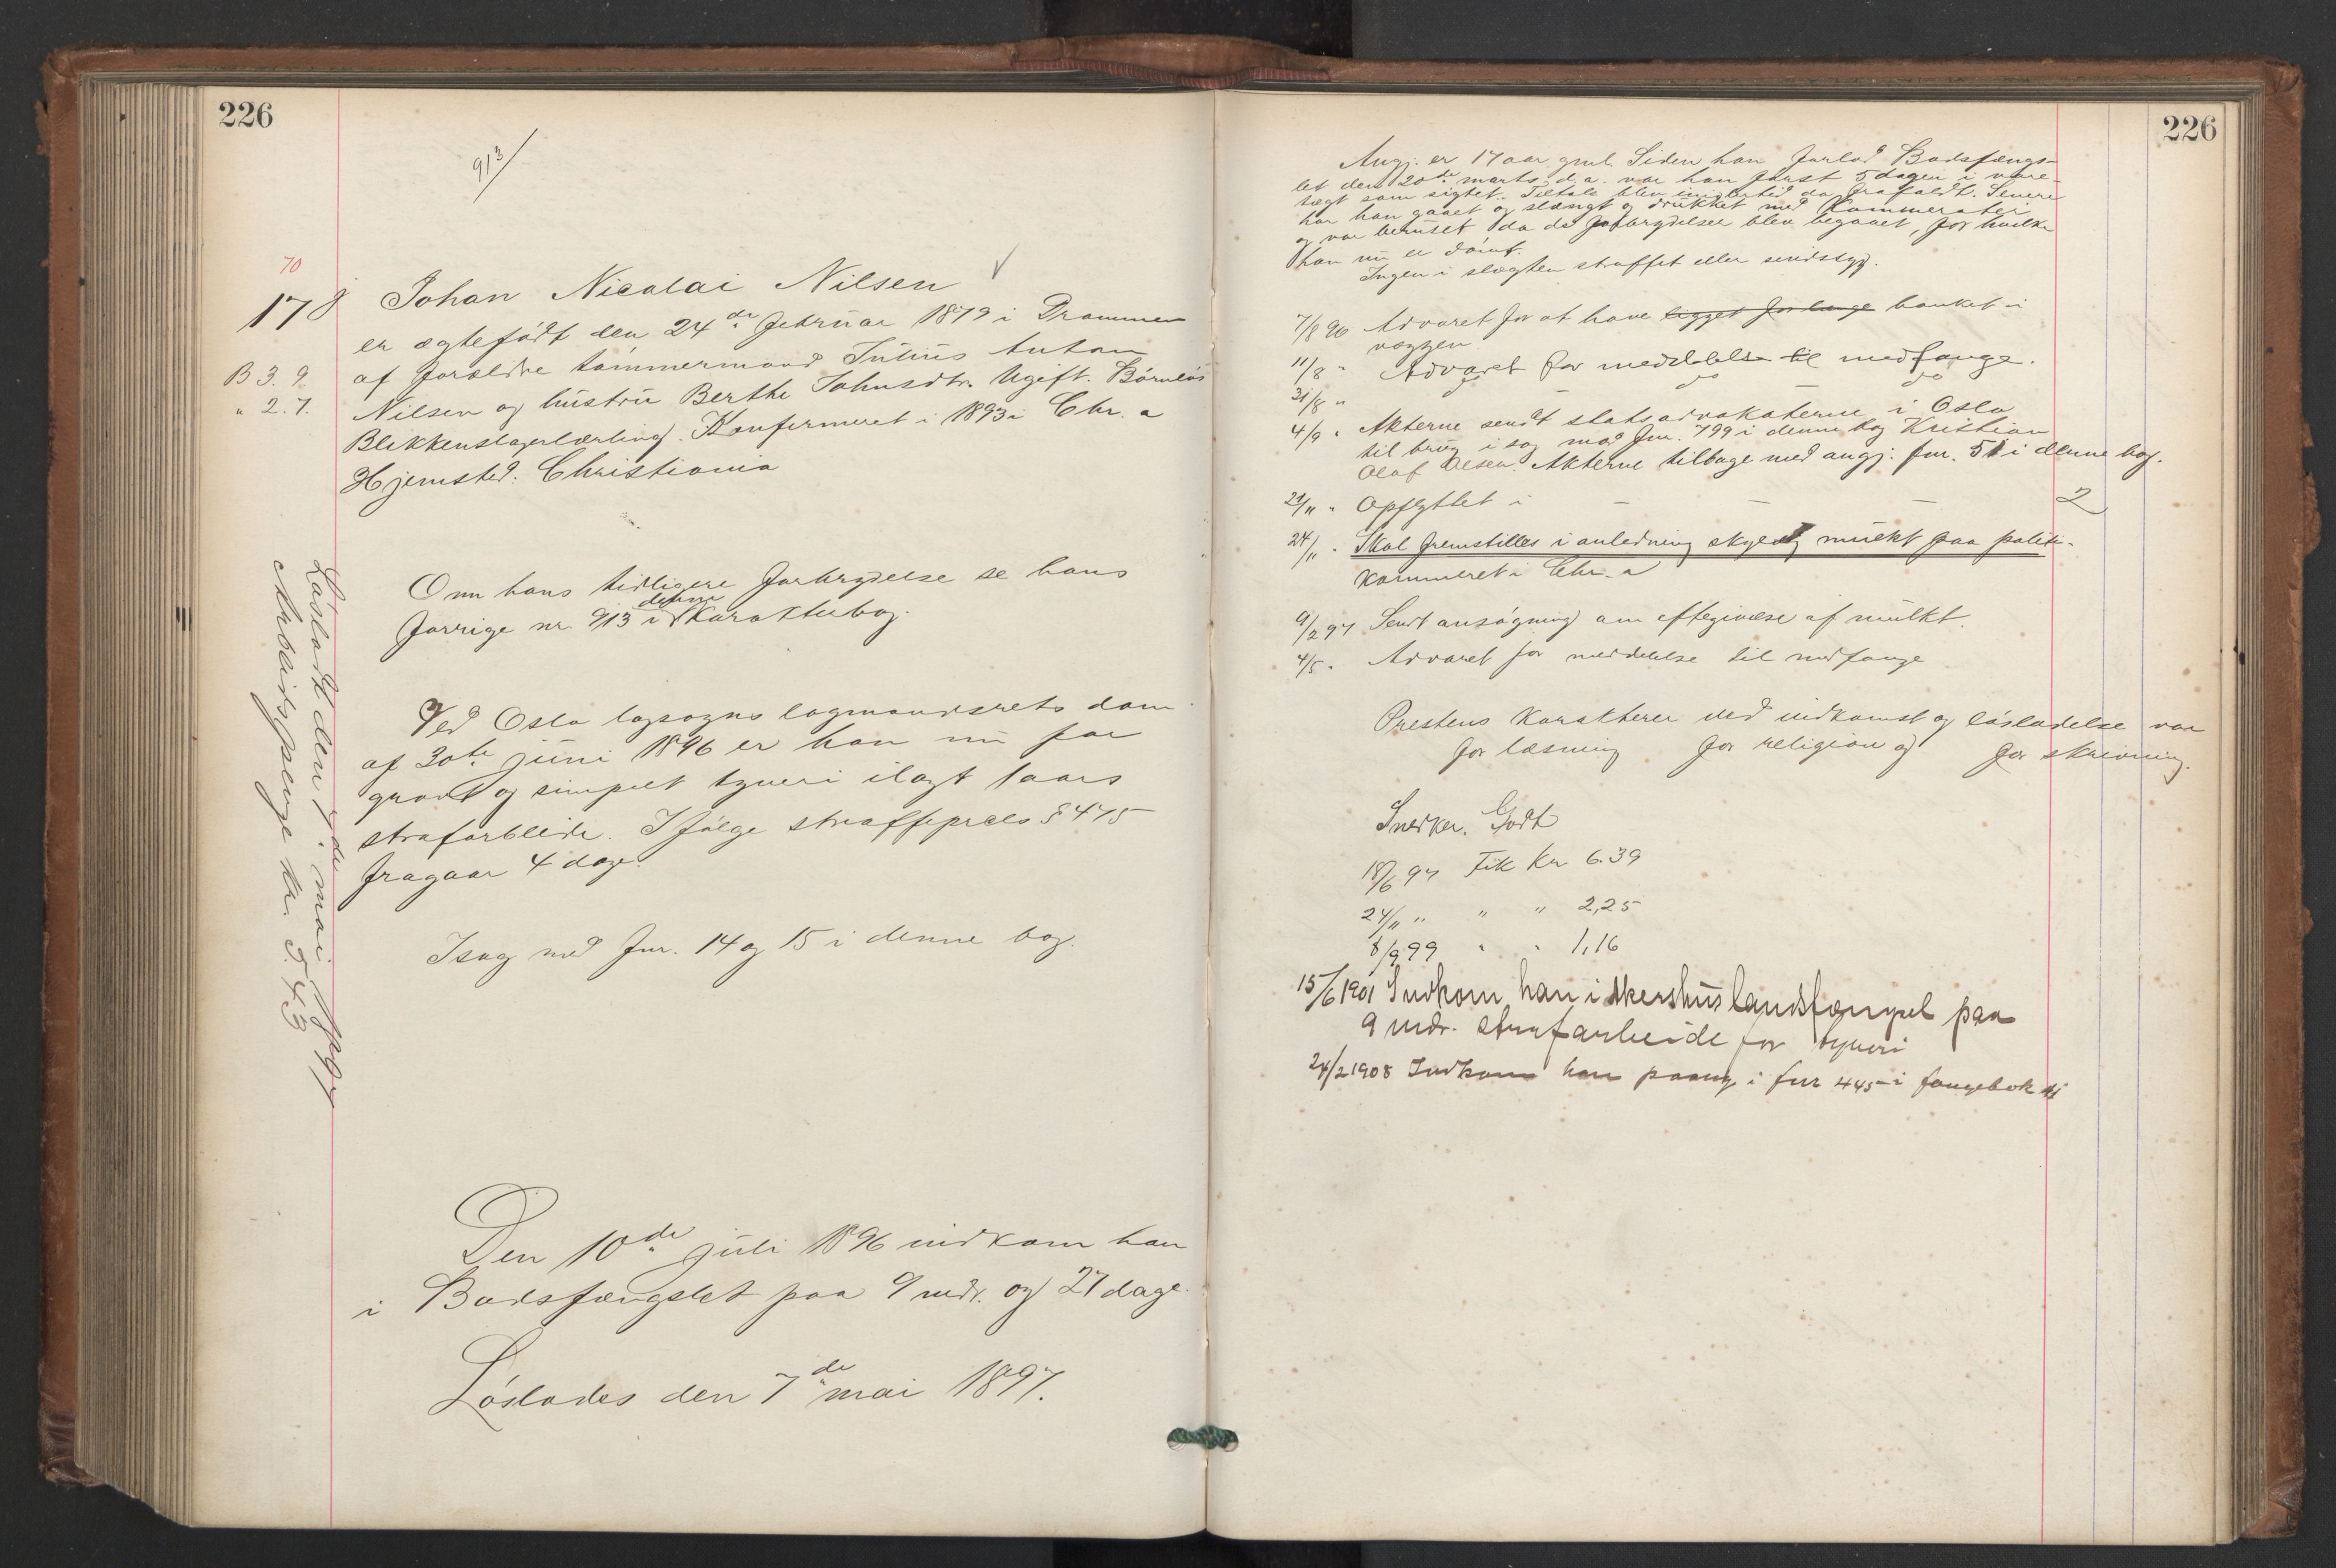 226
913/
70
178
Johan Nicolai Nilsen √
er ægtefødt den 24de februar 1879 i Drammen
B 3. 9.
af forældre tømmermand Julius Antan
" 2. 7.
Nilsen og hustru Berthe Johnsdtr. Ugift. Børnløs
Blikkenslagerlærling. Konfirmeret i 1893 i Chr. a
Hjemsted: Christiania
Om hans tidligere forbrydelse se hans
denne
forrige nr. 913 i karakterbog.
Ved Oslo lagsogns lagmandsrets dom
af 30te juni 1896 er han nu for
grovt og simpelt tyveri ilagt 1 aars
strafarbeide. Ifølge straffeprcls § 475
fragaar 4 dage.
I sag med fnr. 14 og 15 i denne bog.
Den 10de juli 1896 indkom han
i Bodsfængslet paa 9 mdr. og 27 dage.
Løslades den 7de mai 1897.
Løsladt den 7de mai 1897
Arbeidspenge kr. 5.43
226
Angj. er 17 aar gml. Siden han forlod Bodsfængs-
let den 20de marts d. a. var han først 5 dager i vare-
tægt som sigtet. Tiltale blev imidlertid da frafaldt. Senere
har han gaaet og slængt og drukket med Kammerater
og var beruset da de forbrydelser blev begaaet, for hvilke
han nu er dømt.
Ingen i slægten straffet eller sindssyg.
7/8 96 Advaret for at have ligget for længe banket i
væggen.
11/8 " Advaret for meddelelse til medfange.
31/8 " do do do
4/9 " Akterne sendt statsadvokaterne i Oslo
til brug i sag mod fnr. 799 i denne bog Kristian
Olaf Olsen. Akterne tilbage med angj. fnr. 51 i denne bog.
21/11 " Opflyttet i — — — 2
24/11 " Skal fremstilles i anledning skyldig mulkt paa politi-
kammeret i Chr. a
9/2 97 Sendt ansøgning om eftergivelse af mulkt.
4/5 " Advaret for meddelelse til medfange
Prestens karakterer ved indkomst og løsladelse var
for læsning for religion og for skrivning.
Snedker. Godt
18/6 97 Fik kr 6.39
24/11 " " " 2,25
8/9 99 " " 1,16
15/6 1901 Indkom han i Akershus landsfængsel paa
9 mdr. strafarbeide for tyveri
24/2 1908 Indkom han paany i fnr 445 i fangebok